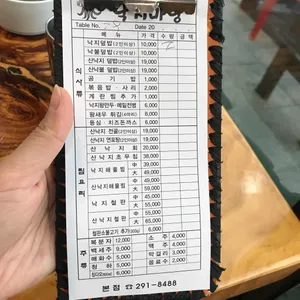 Table No. Date 20
메 뉴 가 격 수 량 금 액
낙지덮밥(2인이상) 10,000
낙불덮밥(2인이상) 10,000
산낙지 덮밥(2인이상) 19,000
산낙불 덮밥(2인이상) 19,000
공 기 밥 1,000
볶음밥 · 사리 2,000
계 란 찜 추 가 1,000
낙지왕만두 · 메밀전병 6,000
왕새우 튀김(4마리) 8,000
등심 · 치즈돈까스 6,000
산낙지 전골(2인이상) 19,000
산낙지 연포탕(2인이상) 19,000
산 낙 지 회 20,000
산낙지초무침 39,000
낙지해물찜 中 39,000
大 49,000
산낙지해물찜 中 49,000
大 59,000
낙지철판 中 45,000
大 55,000
산낙지철판 中 55,000
大 65,000
6,000
복분자 12,000 소 주 4,000
백세주 9,000 맥 주 4,000
매화수 5,000 막걸리 3,000
청 하 5,000 음료수 2,000
6,000
본점 ☎ 291-8488